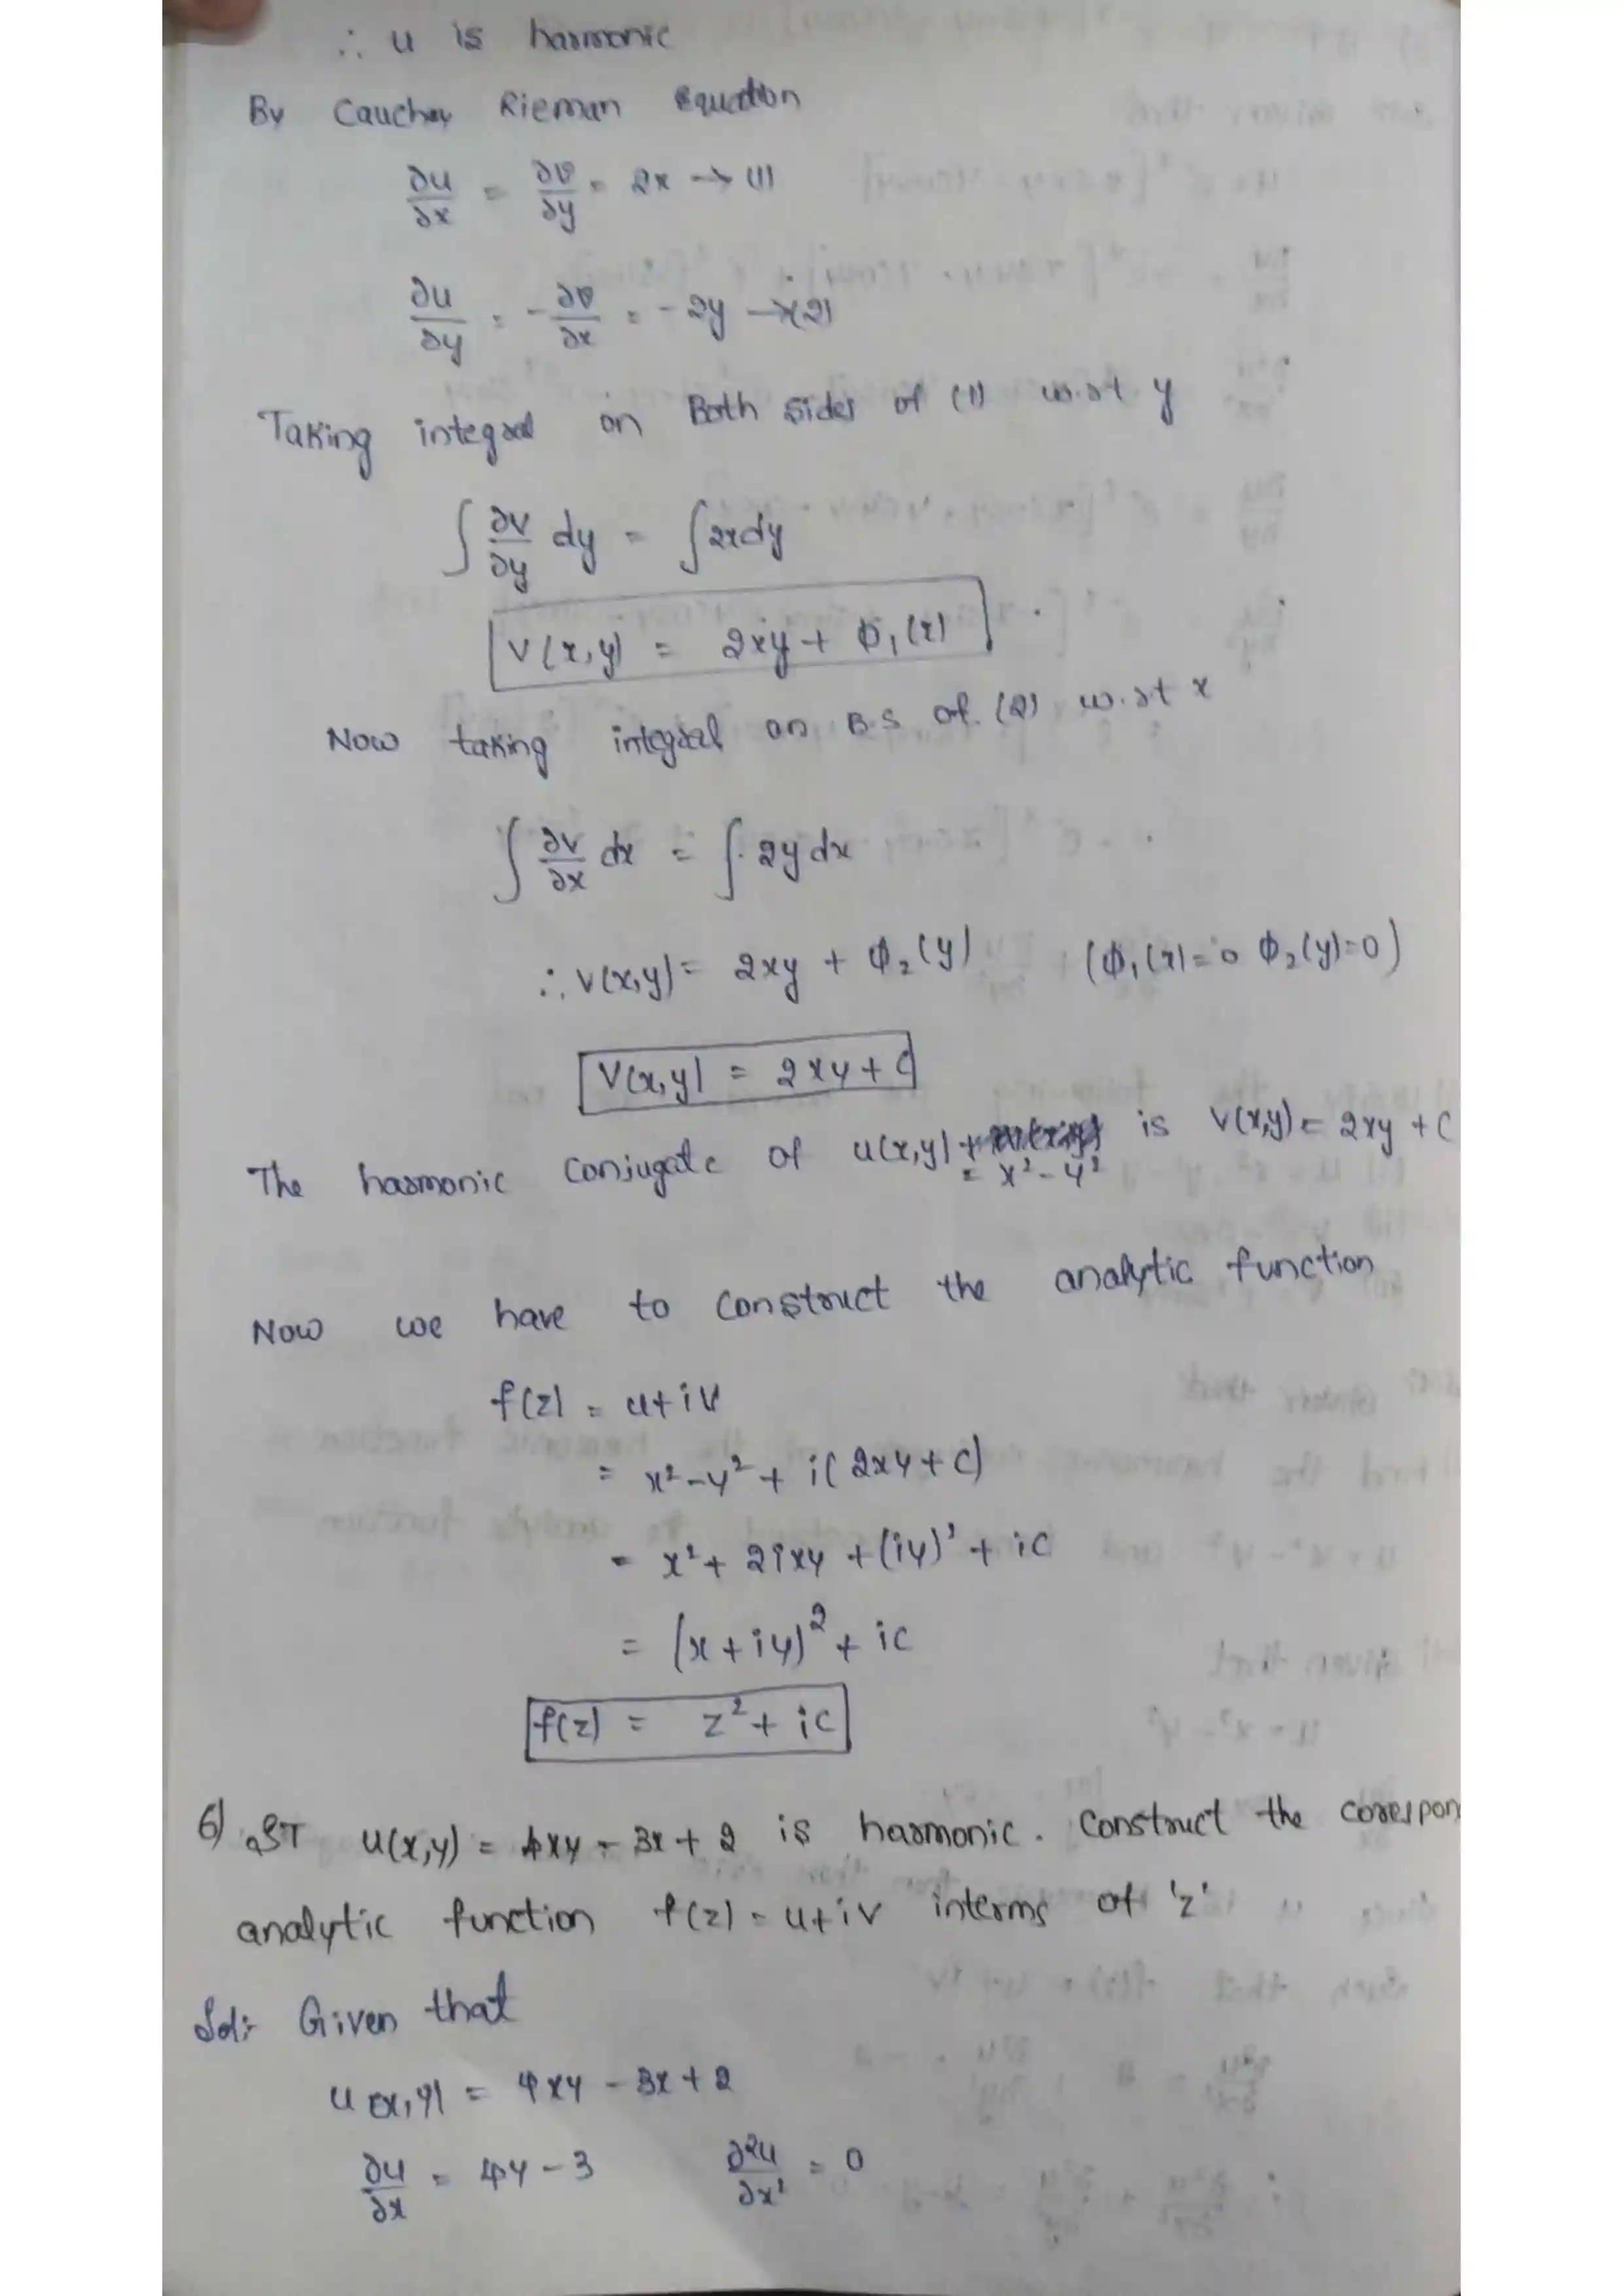 ∴ u is harmonic
By Cauchey Rieman Equation
∂u/∂x = ∂v/∂y = 2x → (1)
∂u/∂y = -∂v/∂x = -2y → (2)
Taking integral on Both sides of (1) w.r.t y
∫ ∂v/∂y dy = ∫ 2x dy
V(x,y) = 2xy + Φ₁(x)
Now taking integral on B.S of (2) w.r.t x
∫ ∂v/∂x dx = ∫ 2y dx
∴ V(x,y) = 2xy + Φ₂(y) (Φ₁(x)=0 Φ₂(y)=0)
V(x,y) = 2xy + C
The harmonic Conjugate of u(x,y) = x²-y² is V(x,y) = 2xy + C
Now we have to Construct the analytic function
f(z) = u+iv
= x²-y² + i(2xy + C)
= x² + 2ixy + (iy)² + iC
= (x+iy)² + ic
f(z) = z² + ic
6) ST u(x,y) = 4xy - 3x + 2 is harmonic. Construct the corespon
analytic function f(z) = u+iv interms of 'z'
Sol:- Given that
u(x,y) = 4xy - 3x + 2
∂u/∂x = 4y - 3 ∂²u/∂x² = 0